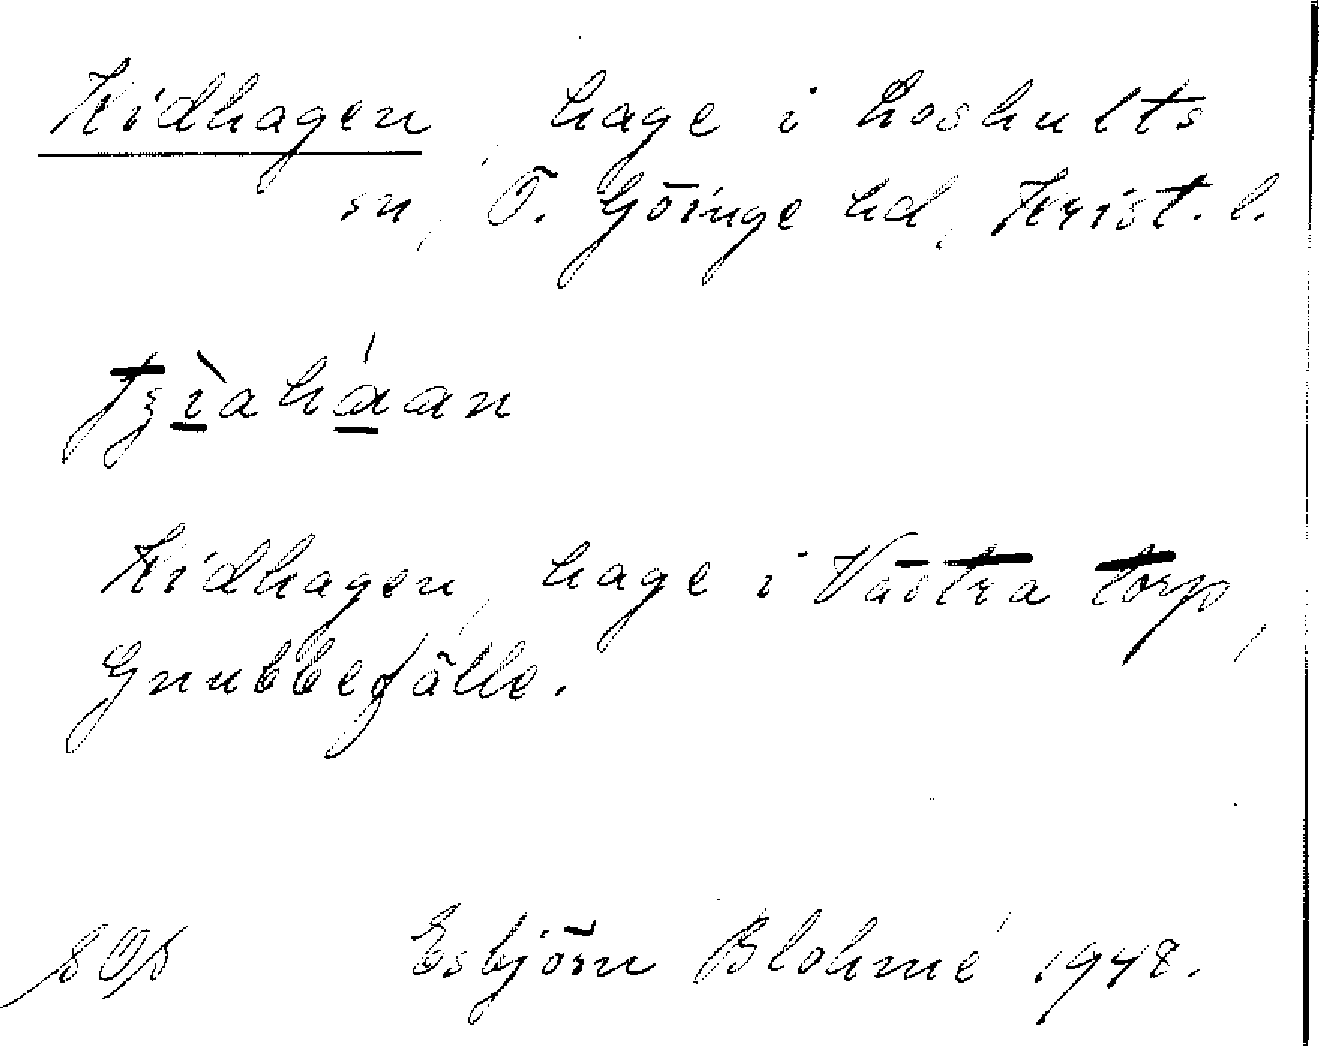 Kidhagen, hage i Loshults
sn, Ö. Göinge hd, Krist. l.
tʒìahá̱an
Kidhagen, hage i Västra torp,
Gnubbefälle.
Esbjörn Blohmé 1948.